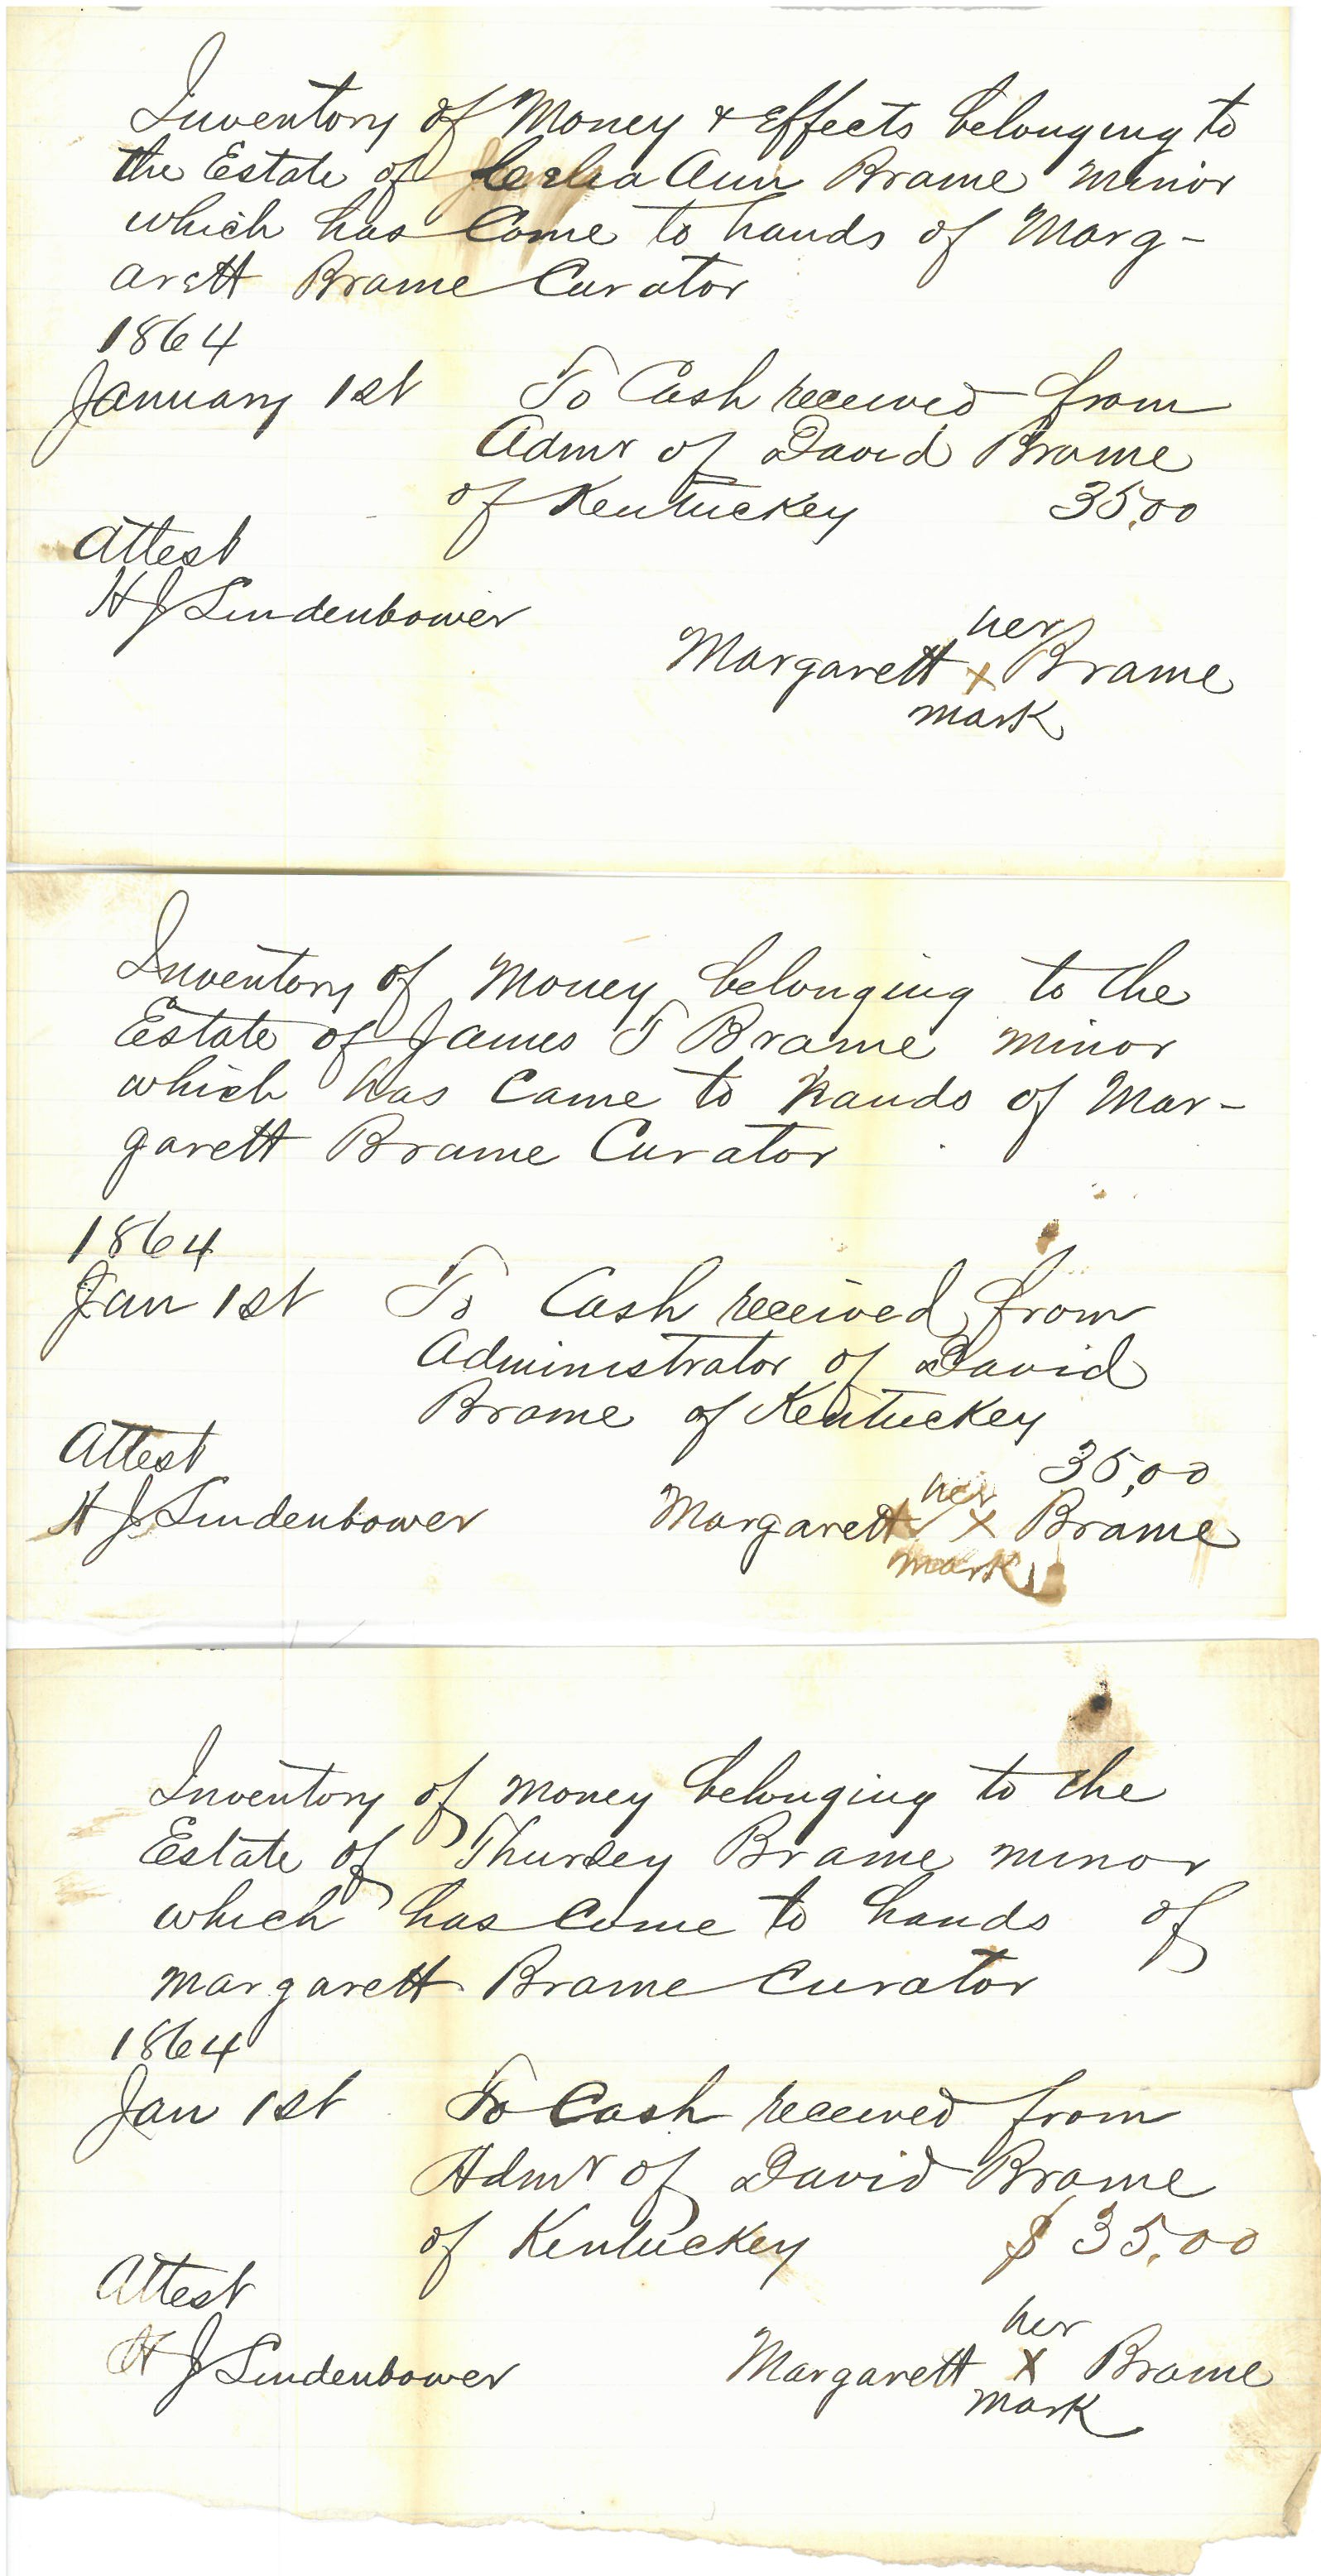 Inventory of Money & Effects belonging to
the Estate of Celia Ann Brame minor
which has Come to hands of Marg-
arett Brame Curator
1864
January 1st To Cash received from
Admr of David Brame
of Kentucky 35,00
Attest
H J Lindenbower
her
Margarett x Brame
mark
Inventory of Money belonging to the
Estate of James T Brame minor
which has Came to hands of Mar-
garett Brame Curator
1864
Jan 1st To Cash received from
Administrator of David
Brame of Kentuckey
35,00
Attest
H J Lindenbower
her
Margarett x Brame
mark
Inventory of Money belonging to the
Estate of Thursey Brame minor
which has Come to hands of
Margarett Brame Curator
1864
Jan 1st To Cash received from
Admr of David Brame
of Kentuckey $ 35,00
Attest
H J Lindenbower
her
Margarett x Brame
mark